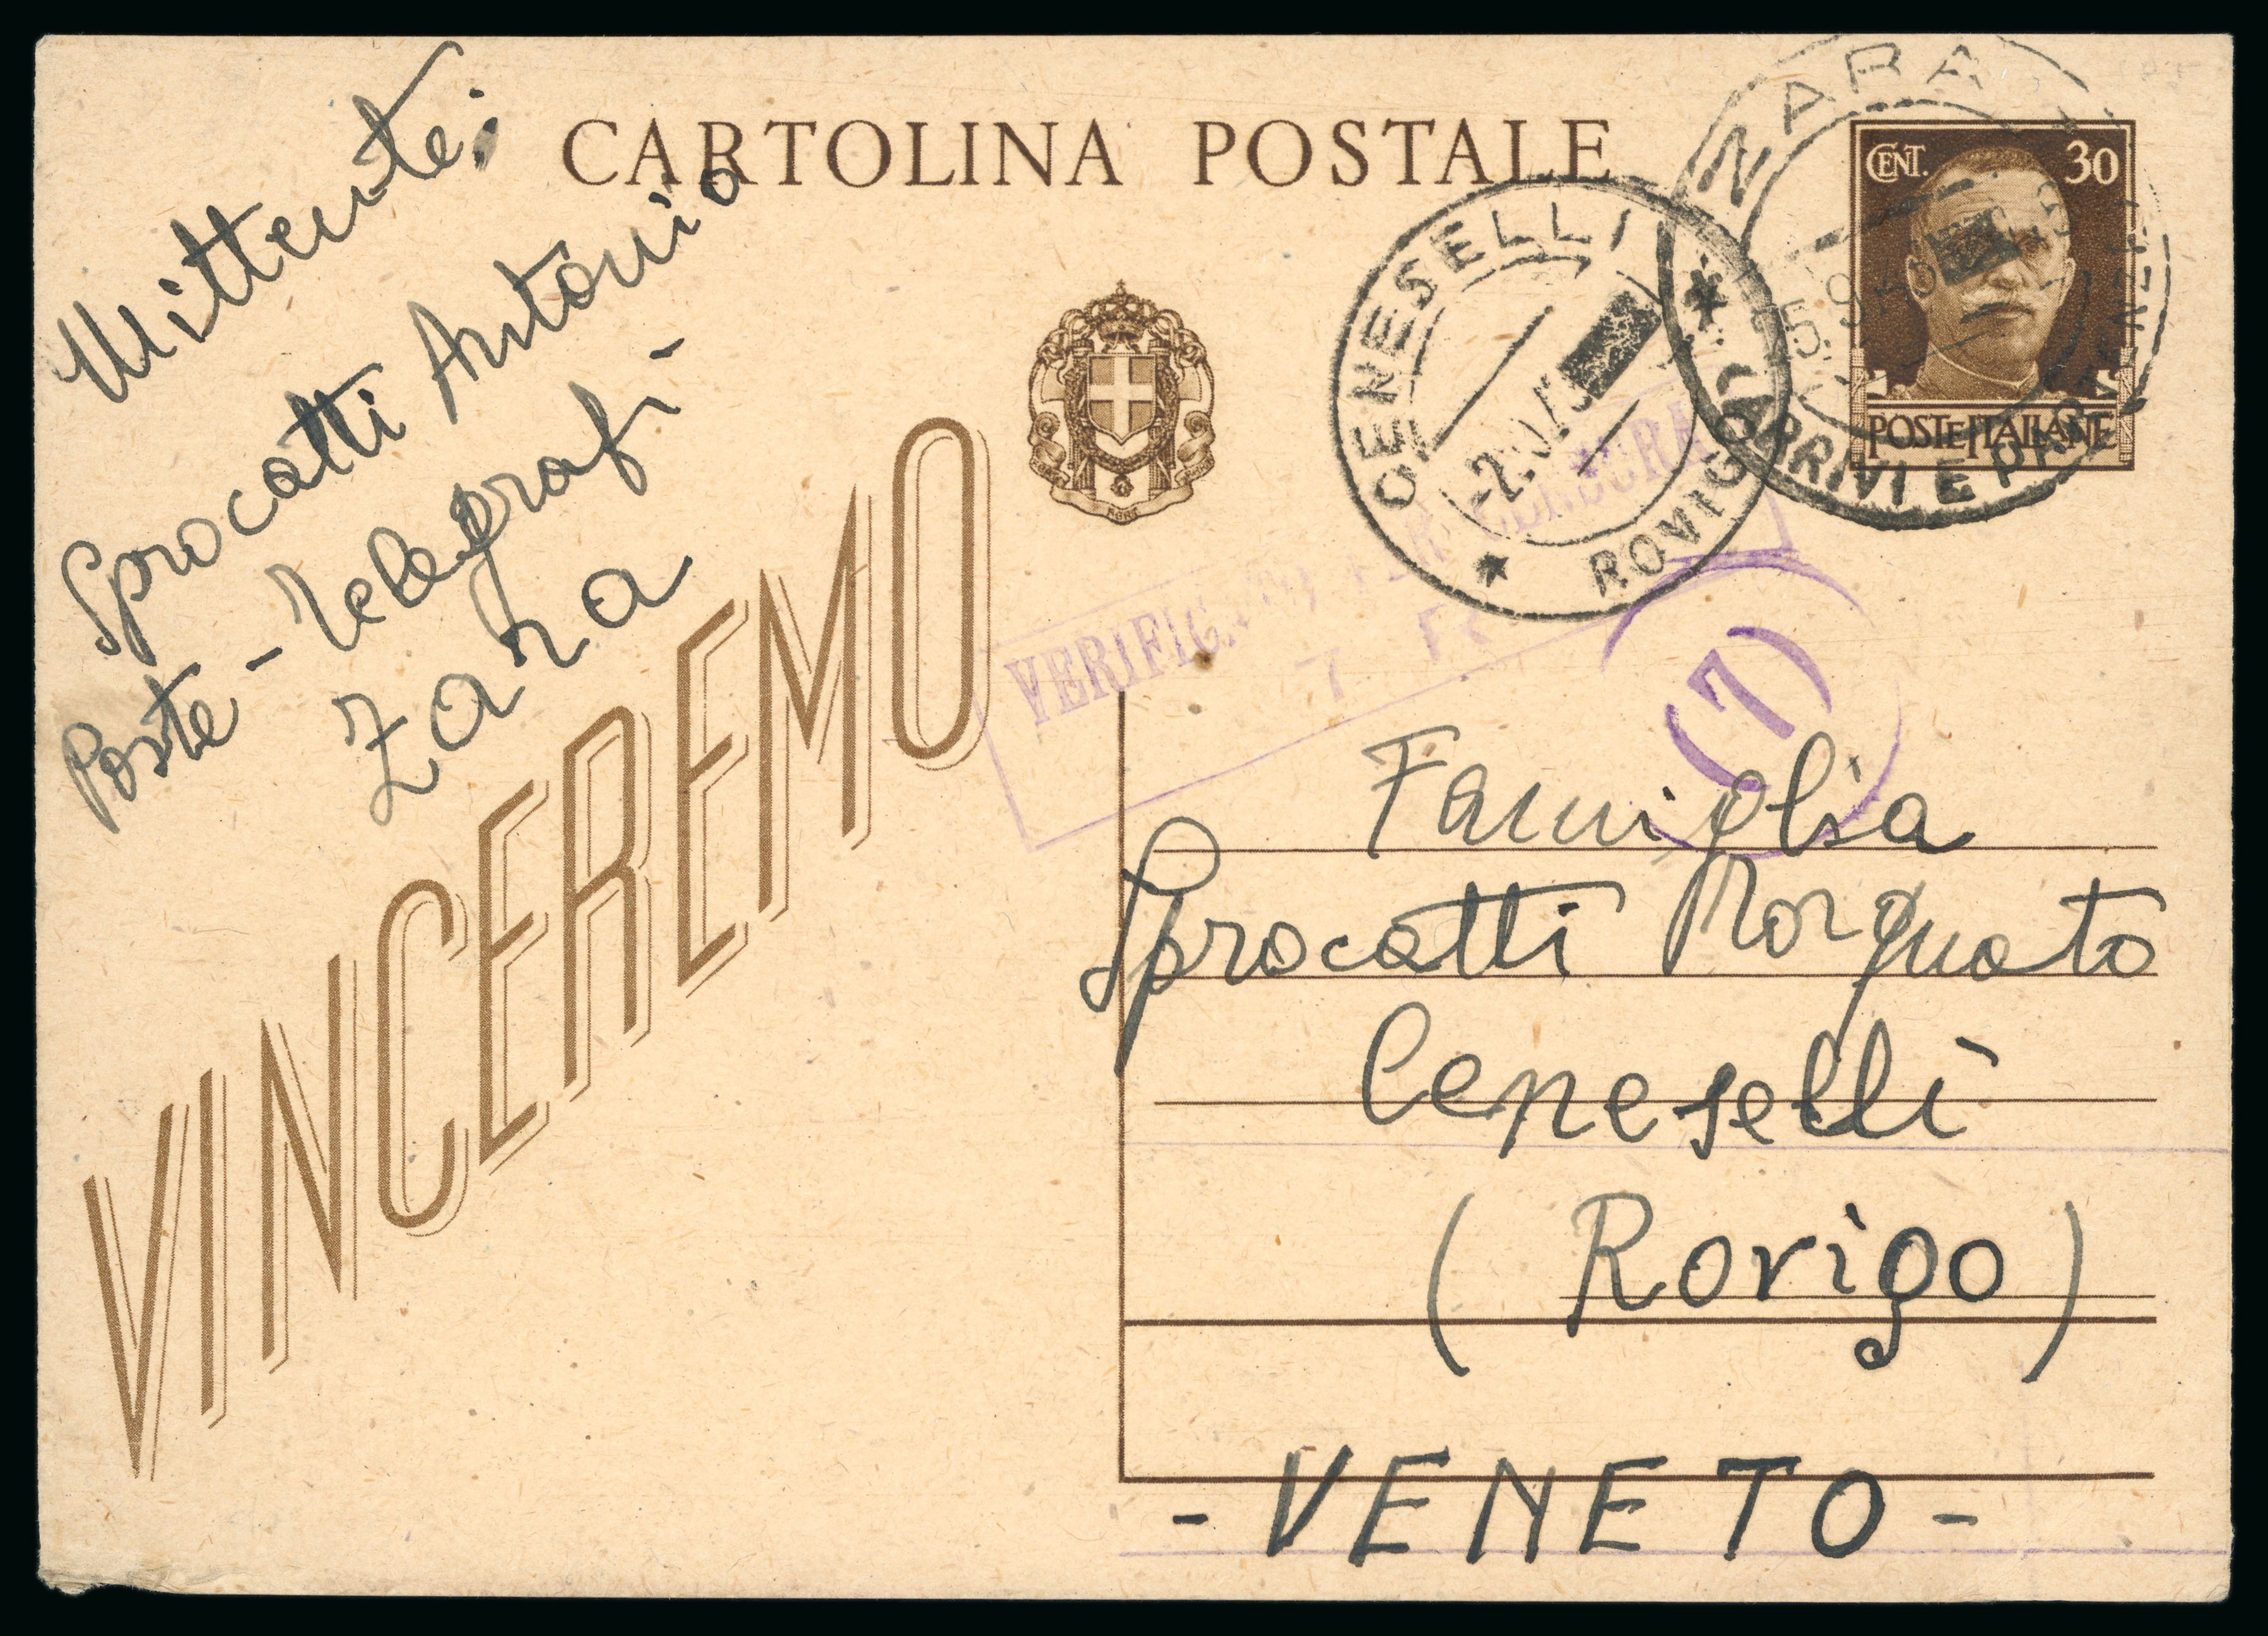 Mittente:
Sprocatti Antonio
Poste - Telegrafi -
Zara
CARTOLINA POSTALE
CENT. 30
POSTE ITALIANE
ZARA
ARRIVI E
CENESELLI
ROVIGO
VERIFIC
7 F
(7)
VINCEREMO
Famiglia
Sprocatti Torquato
Ceneselli
(Rovigo)
- VENETO -